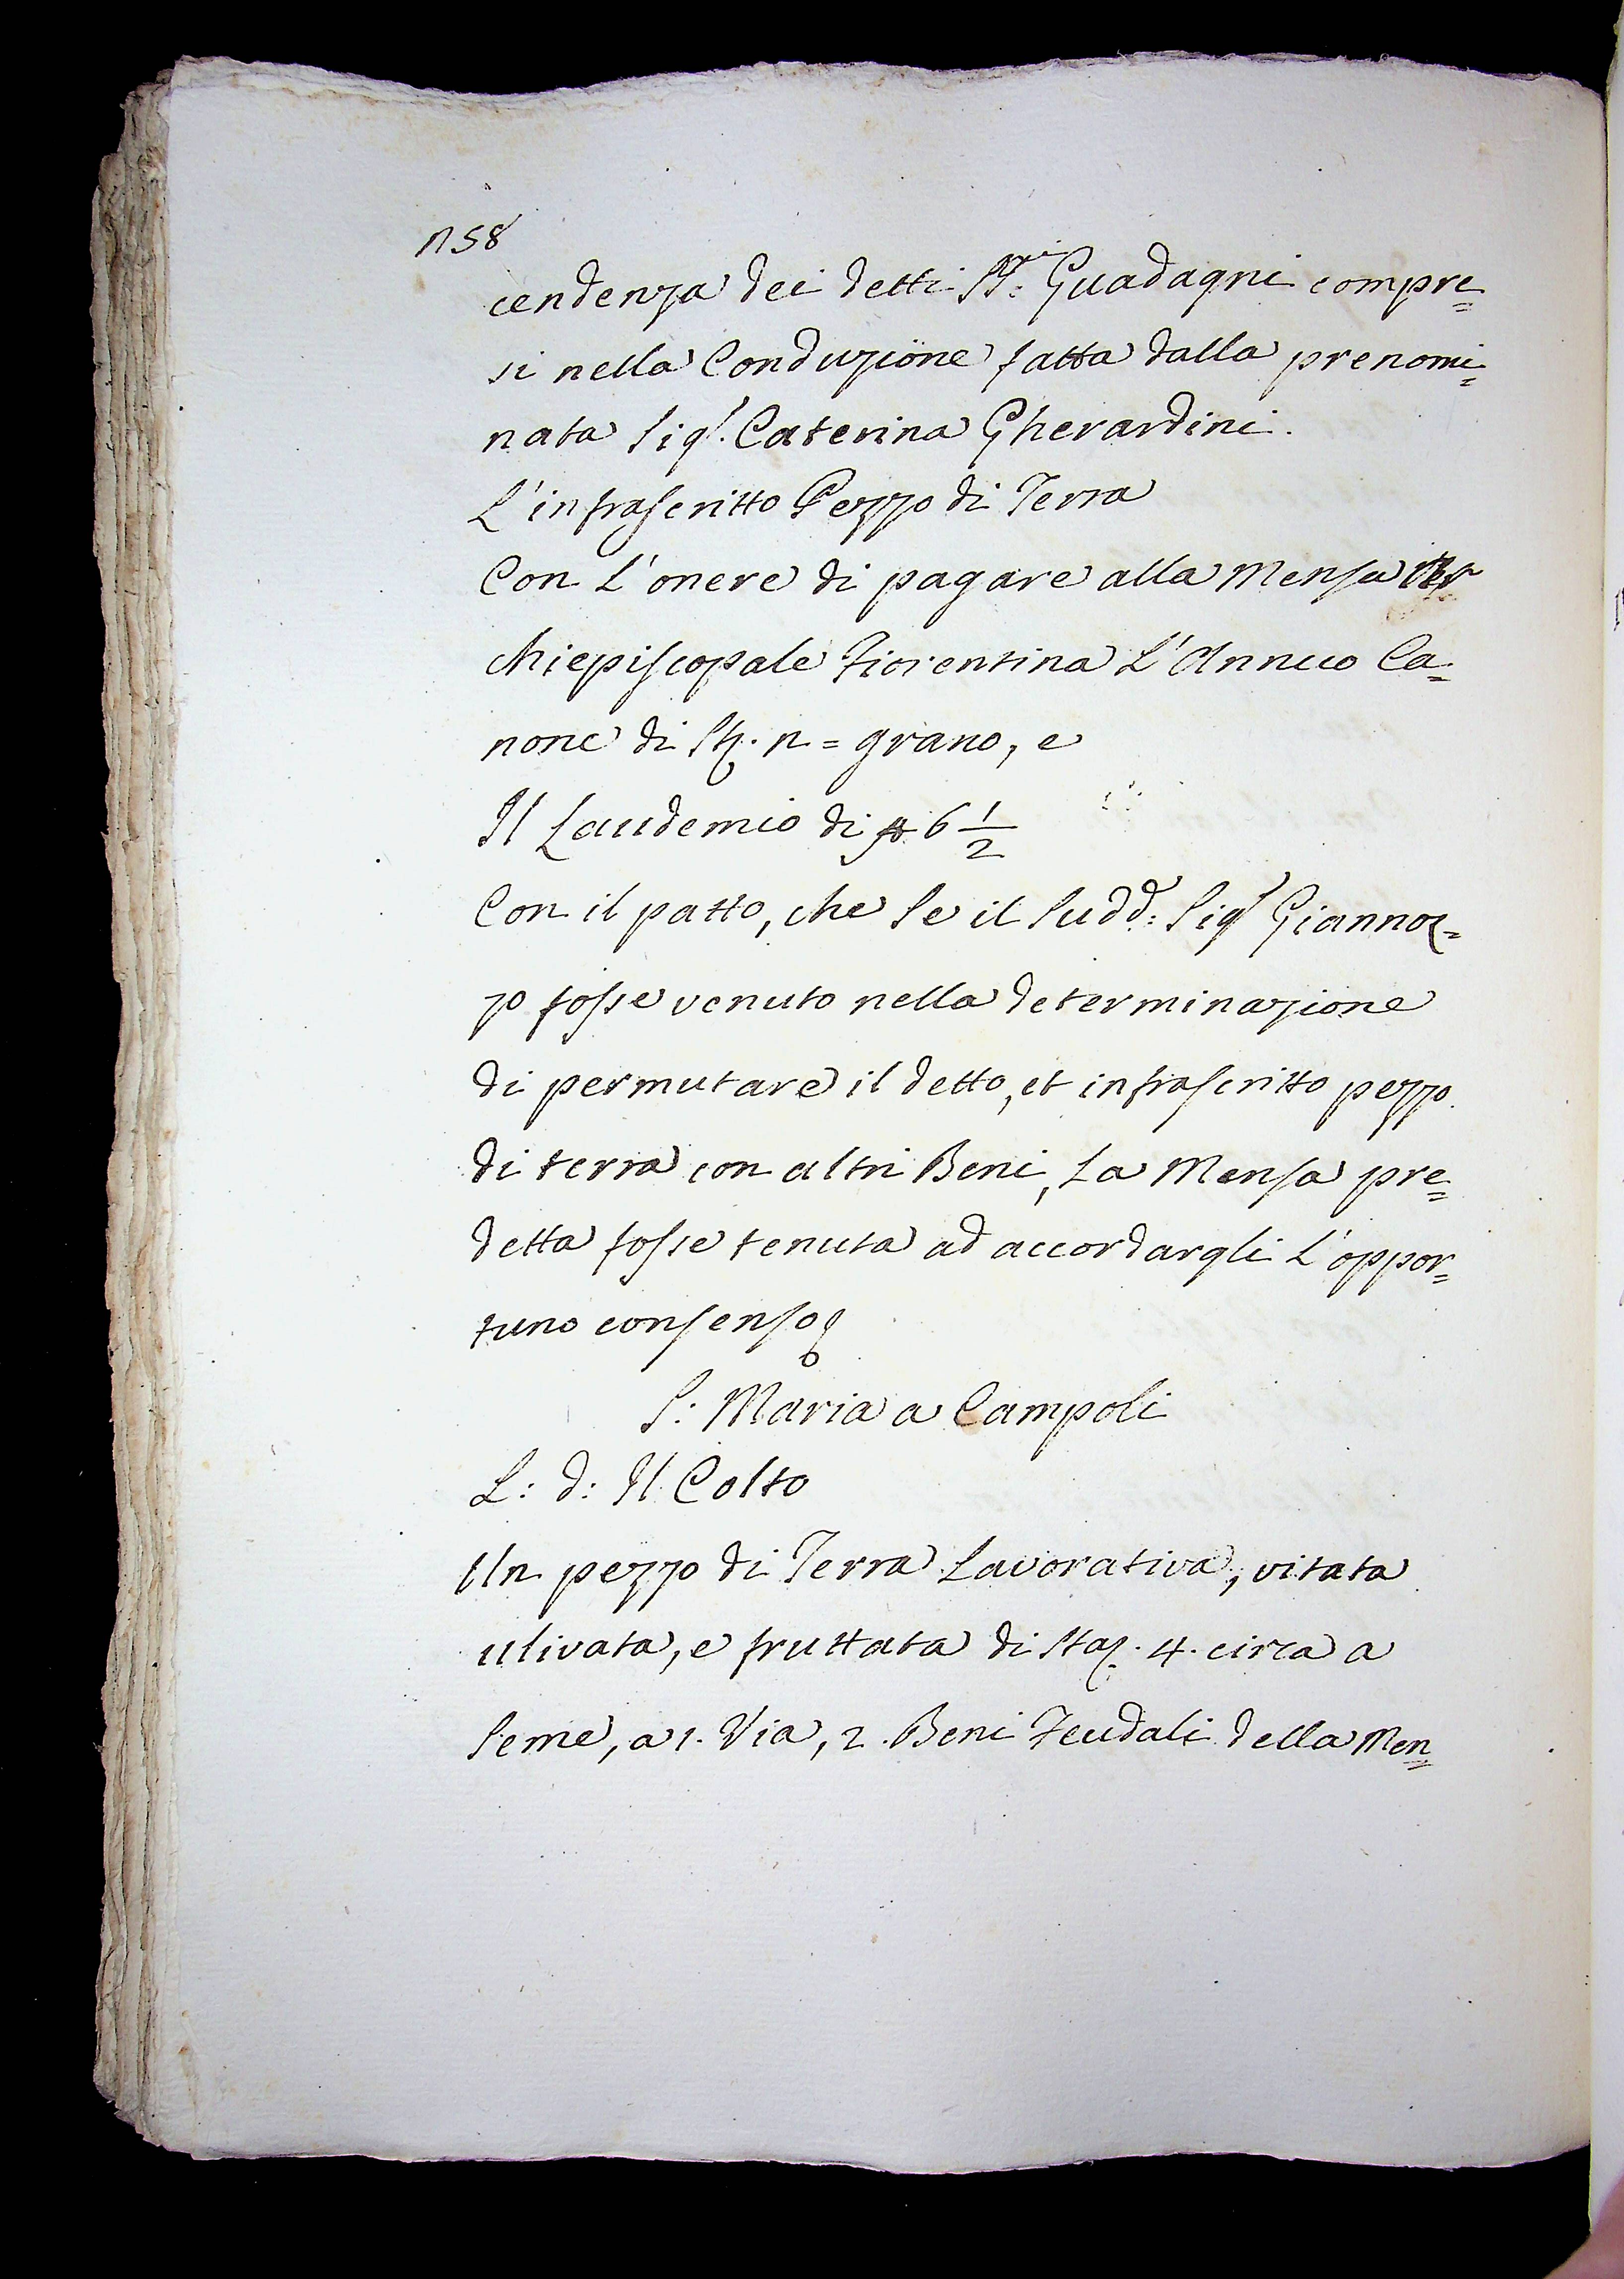 1158
cendenza dei detti SS:ri Guadagni compre=
si nella Conduzione fatta dalla prenomi=
nata Sig.ra Caterina Gherardini.
L'infrascritto Pezzo di Terra
Con L'onere di pagare alla Mensa Ar
chiepiscopale Fiorentina L'Annuo Ca=
none di St. 11 = grano, e
Il Laudemio di 6 1/2
Con il patto, che Se il Sudd:o Sig.r Giannoz=
zo fosse venuto nella determinazione
di permutare il detto, et infrascritto pezzo
di terra con altri Beni, La Mensa pre=
detta fosse tenuta ad accordargli L'oppor=
tuno consenso
S: Maria a Campoli
L: d: Il Colto
Un pezzo di Terra Lavorativa, vitata
ulivata, e fruttata di Sta. 4. circa a
Seme, a 1. Via, 2. Beni Feudali della Men=